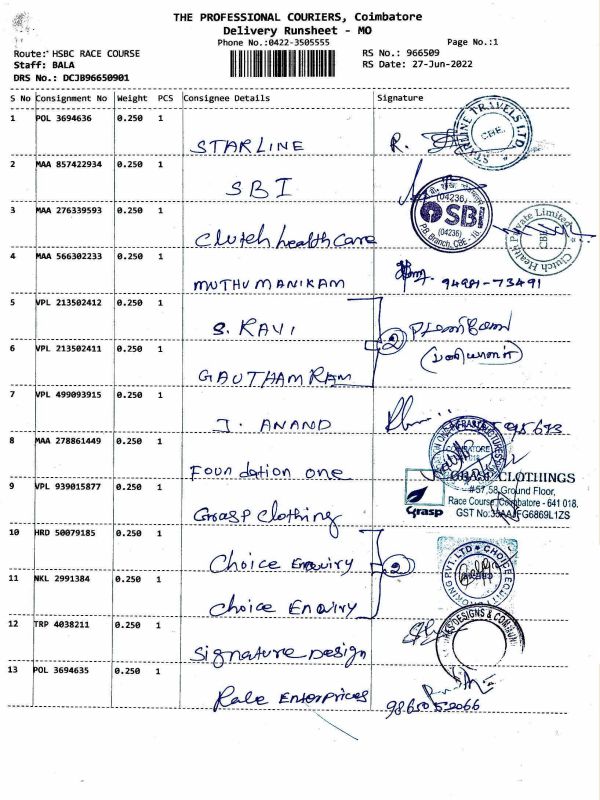 THE PROFESSIONAL COURIERS, Coimbatore
Delivery Runsheet - MO
Phone No.:0422-3505555 Page No.:1
Route: HSBC RACE COURSE RS No.: 966509
Staff: BALA RS Date: 27-Jun-2022
DRS No.: DCJB96650901
S No Consignment No Weight PCS Consignee Details Signature
1 POL 3694636 0.250 1
STARLINE R.
STARLINE TRAVELS LTD. CBE.
2 MAA 857422934 0.250 1
SBI
(04236)
SBI
(04236)
P.B. Branch, CBE - 18.
3 MAA 276339593 0.250 1
Clutch healthcare
Clutch Health Private Limited CBE
4 MAA 566302233 0.250 1
MUTHUMANIKAM 94981-73491
5 VPL 213502412 0.250 1
S. RAVI 2
6 VPL 213502411 0.250 1
GAUTHAMRAM
7 VPL 499093915 0.250 1
J. ANAND
8 MAA 278861449 0.250 1
Foundation one
9 VPL 939015877 0.250 1
Grasp Clothing
Grasp
GRASP CLOTHINGS
#57,58, Ground Floor,
Race Course, Coimbatore - 641 018.
10 HRD 50079185 0.250 1
Choice Enquiry 2
11 NKL 2991384 0.250 1
Choice Enquiry
12 TRP 4038211 0.250 1
Signature Design
DESIGNS & COMMUNI
13 POL 3694635 0.250 1
Rale Enterprices
9865052066